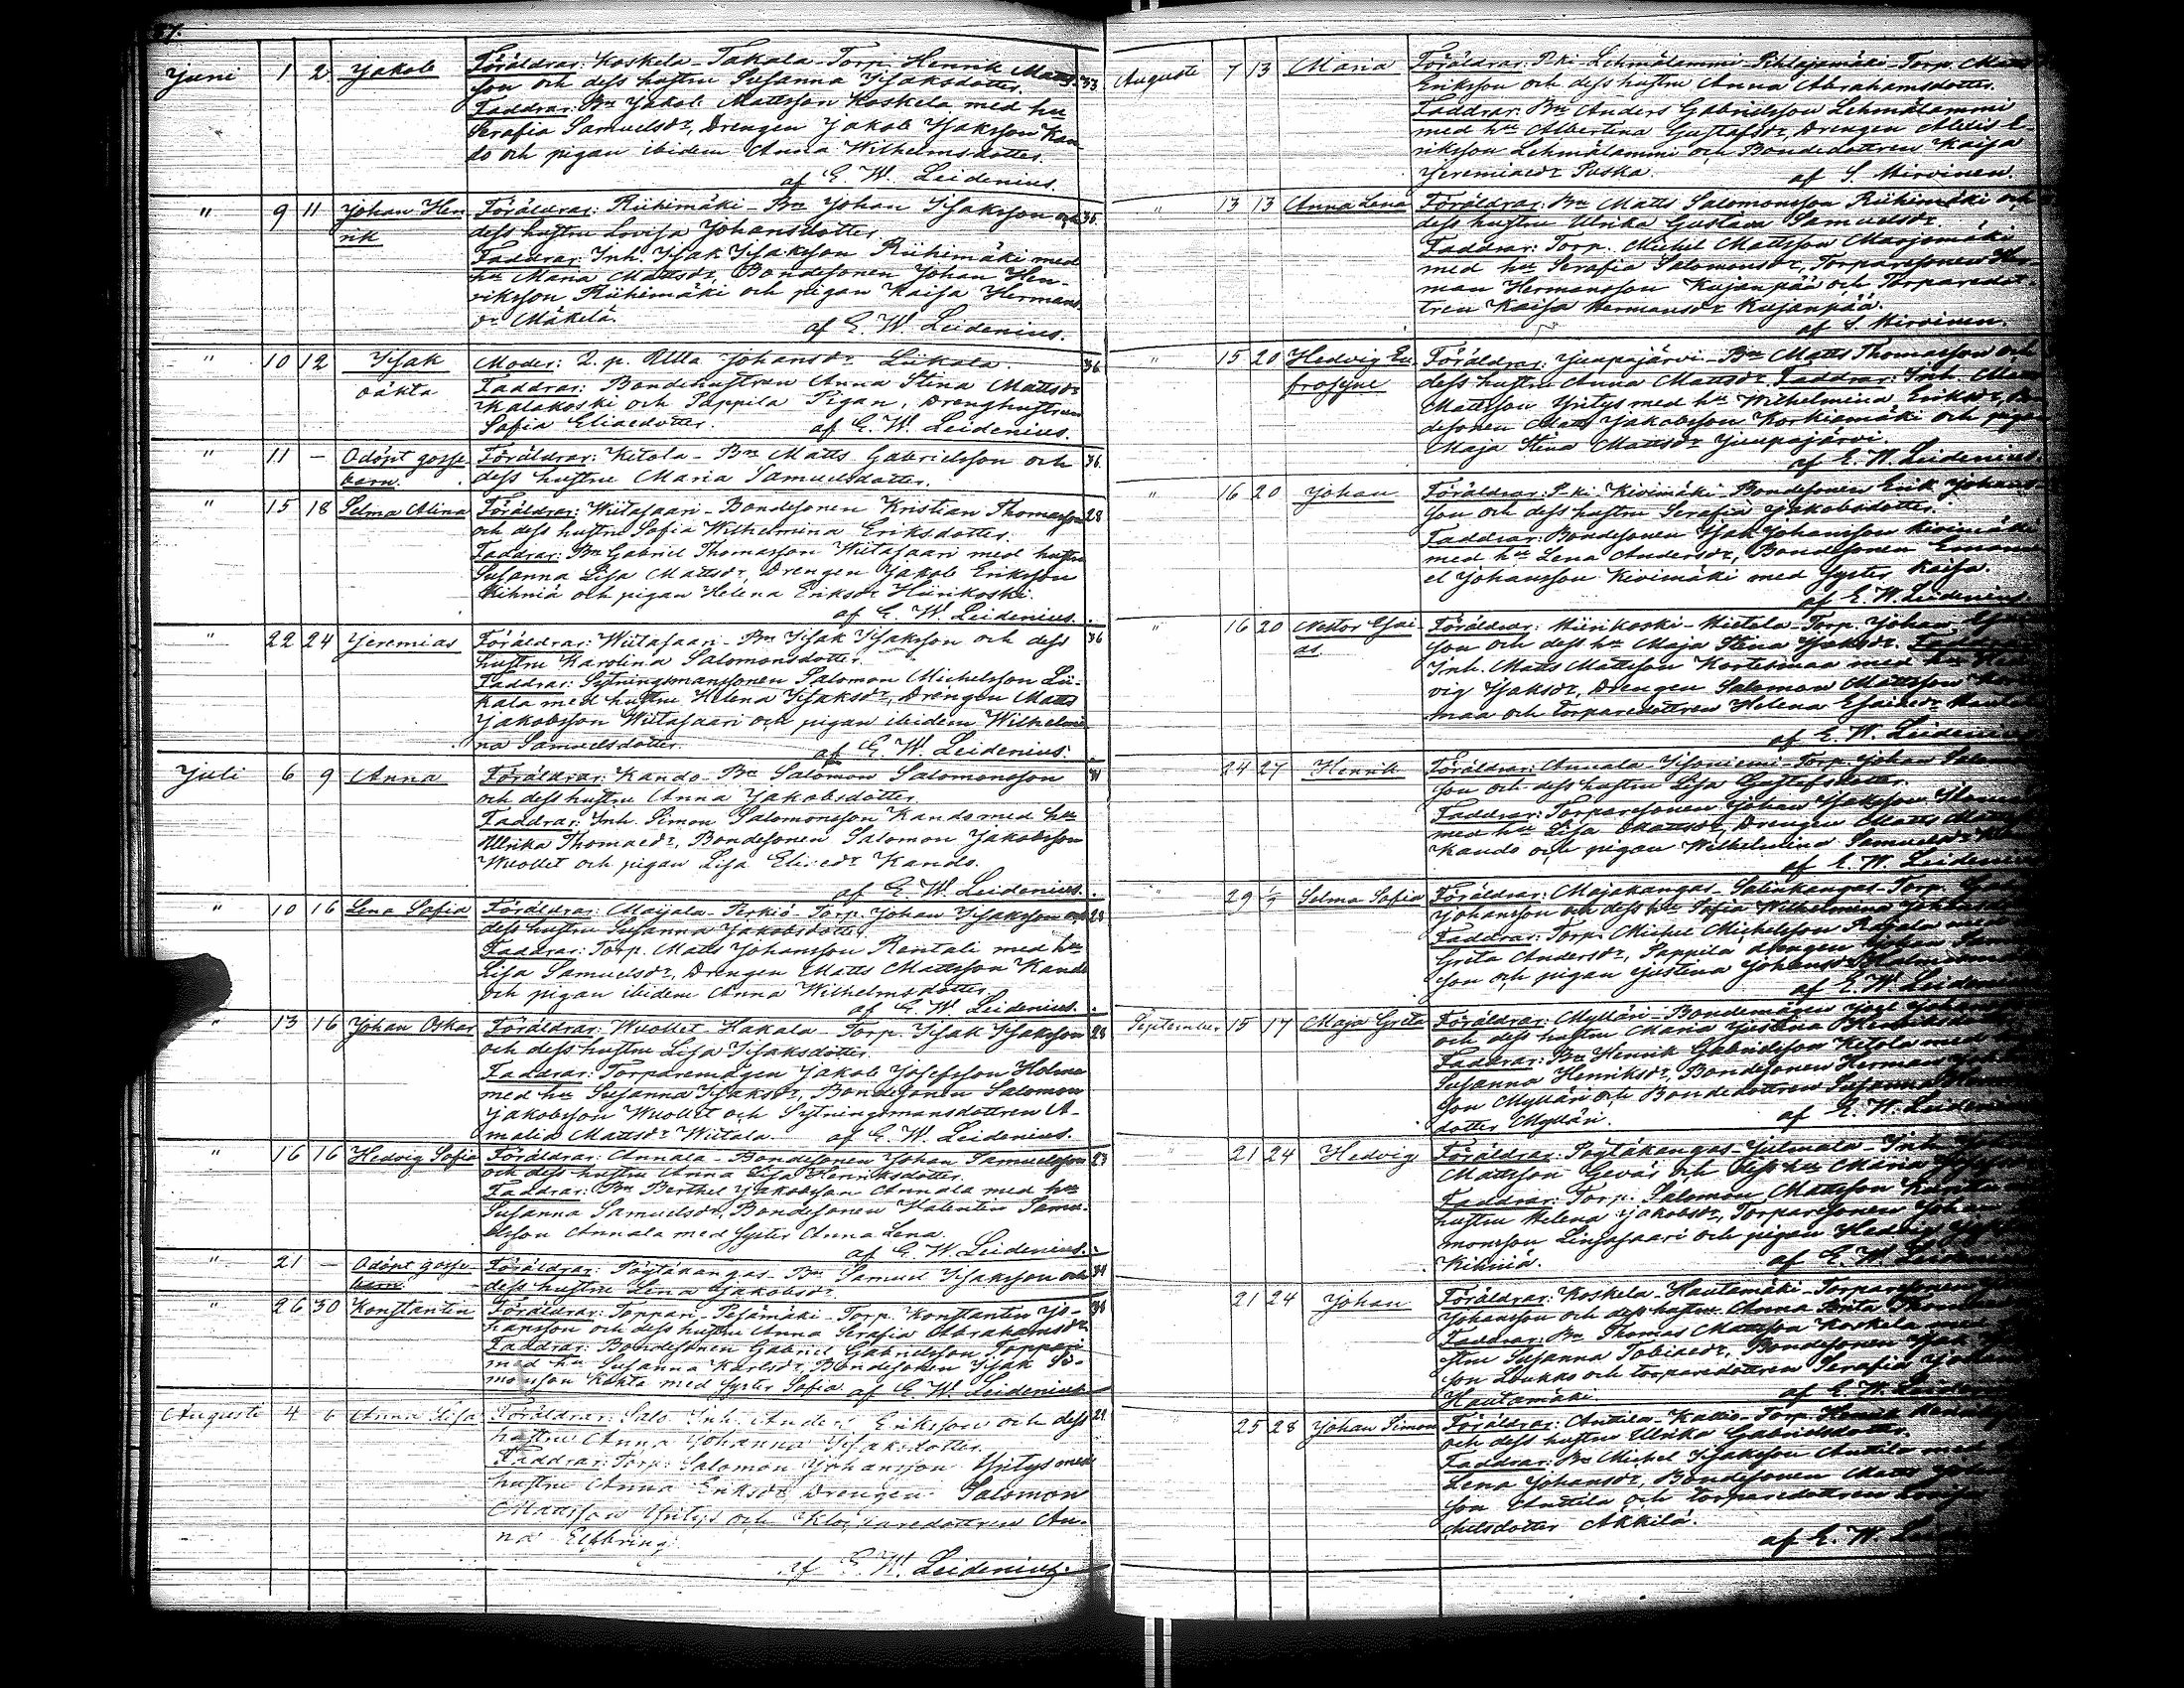 37.
Juni 1 2 Jakob Föräldrar: Koskela-Takala-Torp. Henrik Matts- 33
son och dess hustru Susanna Isaksdotter.
Faddrar: Bn Jakob Mattsson Koskela med hu
Serafia Samuelsdr, Drengen Jakob Isaksson Kan-
do och pigan ibidem Anna Wilhelmsdotter.
af E. W. Leidenius.
" 9 11 Johan Hen- Föräldrar: Riihimäki-Bn Johan Isaksson och 35.
rik dess hustru Lovisa Johansdotter.
Faddrar: Inh. Isak Isaksson Riihimäki med
hu Maria Mattsdr, Bondesonen Johan Hen-
riksson Riihimäki och pigan Kaisa Hermans-
dr Mäkelä. af E. W. Leidenius.
" 10 12 Isak Moder: Q. p. Ulla Johansdr Liikala. 36
oäkta Faddrar: Bondehustrun Anna Stina Mattsdr
Kalakoski och Pappila Pigan, Drenghustrun
Sofia Eliaedotter. af E. W. Leidenius.
" 11 — Odöpt gosse- Föräldrar: Ketola-Bn Matts Gabrielsson och 36.
barn. dess hustru Maria Samuelsdotter.
" 15 18 Selma Alina Föräldrar: Wiitasaari-Bondesonen Kristian Thomasson 28
och dess hustru Sofia Wilhelmina Eriksdotter.
Faddrar: Bn Gabriel Thomasson Wiitasaari med hustru
Susanna Lisa Mattsdr, Drengen Jakob Eriksson
Kihniä och pigan Helena Eriksdr Hiirikoski.
af E. W. Leidenius.
" 22 24 Jeremias Föräldrar: Wiitasaari-Bn Isak Isaksson och dess 36
hustru Karolina Salomonsdotter.
Faddrar: Sytningsmanssonen Salomon Michelsson Lii-
kala med hustru Helena Isaksdr, Drengen Matts
Jakobsson Wiitasaari och pigan ibidem Wilhelmi-
na Samuelsdotter. af E. W. Leidenius.
Juli 6 9 Anna Föräldrar: Kando-Bn Salomon Salomonsson
och dess hustru Anna Jakobsdotter
Faddrar: Inh. Simon Salomonsson Kando med hu
Ulrika Thomaedr, Bondesonen Salomon Jakobsson
Wuollet och pigan Lisa Eliaedr Kando.
af E. W. Leidenius.
" 10 16 Lena Sofia Föräldrar: Maijala-Perkiö-Torp. Johan Isaksson och 28
dess hustru Susanna Jakobsdotter.
Faddrar: Torp. Matts Johansson Rentali med hu
Lisa Samuelsdr, Drengen Matts Mattsson Kando
och pigan ibidem Anna Wilhelmsdotter.
af E. W. Leidenius.
" 13 16 Johan Oskar Föräldrar: Wuollet-Hakala-Torp. Isak Isaksson 28
och dess hustru Lisa Isaksdotter.
Faddrar: Torparemågen Jakob Josefsson Holma
med hu Susanna Isaksdr, Bondesonen Salomon
Jakobsson Wuollet och Sytningsmansdottren A-
malia Mattsdr Wiitala. af E. W. Leidenius.
" 16 16 Hedvig Sofia Föräldrar: Annala-Bondesonen Johan Samuelsson 23
och dess hustru Anna Lisa Henriksdotter.
Faddrar: Bn Berthel Jakobsson Annala med hu
Susanna Samuelsdr, Bondesonen Valentin Samu-
elsson Annala med syster Anna Lena.
af E. W. Leidenius.
" 21 — Odöpt gosse- Föräldrar: Pögtäkangas-Bn Samuel Isaksson och 34
barn. dess hustru Lena Jakobsdr
" 26 30 Konstantin Föräldrar: Toppari-Pesämäki-Torp. Konstantin Jo-
hansson och dess hustru Anna Serafia Abrahamsdr
Faddrar: Bondesonen Gabriel Gabrielsson Toppari
med hu Susanna Karlsdr, Bondesonen Isak Si-
monsson Kohta med syster Sofia af E. W. Leidenius
Augusti 4 6 Anna Lisa Föräldrar: Salo-Inh. Anders Eriksson och dess 29
hustru Anna Johanna Isaksdotter.
Faddrar: Torp. Salomon Johansson Yritys med
hustru Anna Eriksdr, Drengen Salomon
Mattsson Yritys och Klockaredottren An-
na Elfbring.
af E. W. Leidenius.
Augusti 7 13 Maria Föräldrar: P.ki-Lehmälammi-Pihlajamäki-Torp. Matts
Eriksson och dess hustru Anna Abrahamsdotter.
Faddrar: Bn Anders Gabrielsson Lehmälammi
med hu Albertina Gustafsdr, Drengen Aleksi E-
riksson Lehmälammi och Bondedottren Kaisa
Jeremiaedr Puska. af S. Hirvinen.
" 13 13 Anna Lena Föräldrar: Bn Matts Salomonsson Riihimäki och
dess hustru Ulrika Gustava Samuelsdr.
Faddrar: Torp. Michel Mattsson Marjomäki
med hu Serafia Salomonsdr, Torparesonen Her-
man Hermansson Kujanpää och Torparedot-
tren Kaisa Hermansdr Kujanpää.
af S. Hirvinen.
" 15 20 Hedvig Eu- Föräldrar: Juupajärvi-Bn Matts Thomasson och
frosyne dess hustru Anna Mattsdr. Faddrar: Inh.
Mattsson Yritys med hu Wilhelmina Eriksdr, Bon-
desonen Matts Jakobsson Korkiamäki och pigan
Maja Stina Mattsdr Juupajärvi.
af E. W. Leidenius.
" 16 20 Johan Föräldrar: P-ki-Kivimäki-Bondesonen Erik Johans-
son och dess hustru Serafia Jakobsdotter.
Faddrar: Bondesonen Isak Johansson Kivimäki
med hu Lena Andersdr, Bondesonen Emanu-
el Johansson Kivimäki med syster Kaisa.
af E. W. Leidenius.
" 16 20 Nestor Esai- Föräldrar: Hiirikoski-Hietala-Torp. Johan
as son och dess hu Maja Stina Isaksdr. Faddrar:
Inh. Matts Mattsson Kortesmaa med hu Hed-
vig Isaksdr, Drengen Salomon Mattsson
maa och Torparedottren Helena Esaiaedr
af E. W. Leidenius
24 27 Henrik Föräldrar: Annala-Isoniemi-Torp. Johan
son och dess hustru Lisa Gustafsdotter.
Faddrar: Torparesonen Johan Isaksson
med hu Lisa Mattsdr, Drengen Matts
Kando och pigan Wilhelmina Samuelsdr
af E. W. Leidenius
" 29 1/9 Selma Sofia Föräldrar: Majakangas-Salinkangas-Torp.
Johansson och dess hu Sofia Wilhelmina
Faddrar: Torp. Michel Michelsson Rajala med
Greta Andersdr, Pappila drengen Johan
son och pigan Justina Johansdr
af E. W. Leidenius
September 15 17 Maja Greta Föräldrar: Mylläri-Bondemågen
och dess hustru Maria Justina Henriksdotter
Faddrar: Bn Henrik Gabrielsson Ketola med
Susanna Henriksdr, Bondesonen Herman
son Mylläri och Bondedottren Susanna
dotter Mylläri. af E. W. Leidenius
21 24 Hedvig Föräldrar: Pögtäkangas-Julmala-Inh.
Mattsson Gevär och dess hu Maria
Faddrar: Torp. Salomon Mattsson
hustru Helena Jakobsdr, Torparesonen Johan
monsson Linjasaari och pigan Hedvig
Kihniä. af E. W.
21 24 Johan Föräldrar: Koskela-Hautamäki-
Johansson och dess hustru Anna
Faddrar: Bn Thomas Mattsson Koskela med
stru Susanna Tobiaedr, Bondesonen Isak
son Loukko och torparedottren Serafia
Hautamäki. af E. W.
25 28 Johan Simon Föräldrar: Anttila-Kallio-Torp. Henrik
och dess hustru Ulrika Gabrielsdotter.
Faddrar: Bn Michel Isaksson Anttila med
Lena Johansdr, Bondesonen Matts
son Anttila och torparedottren
chelsdotter Akkila.
af E. W.